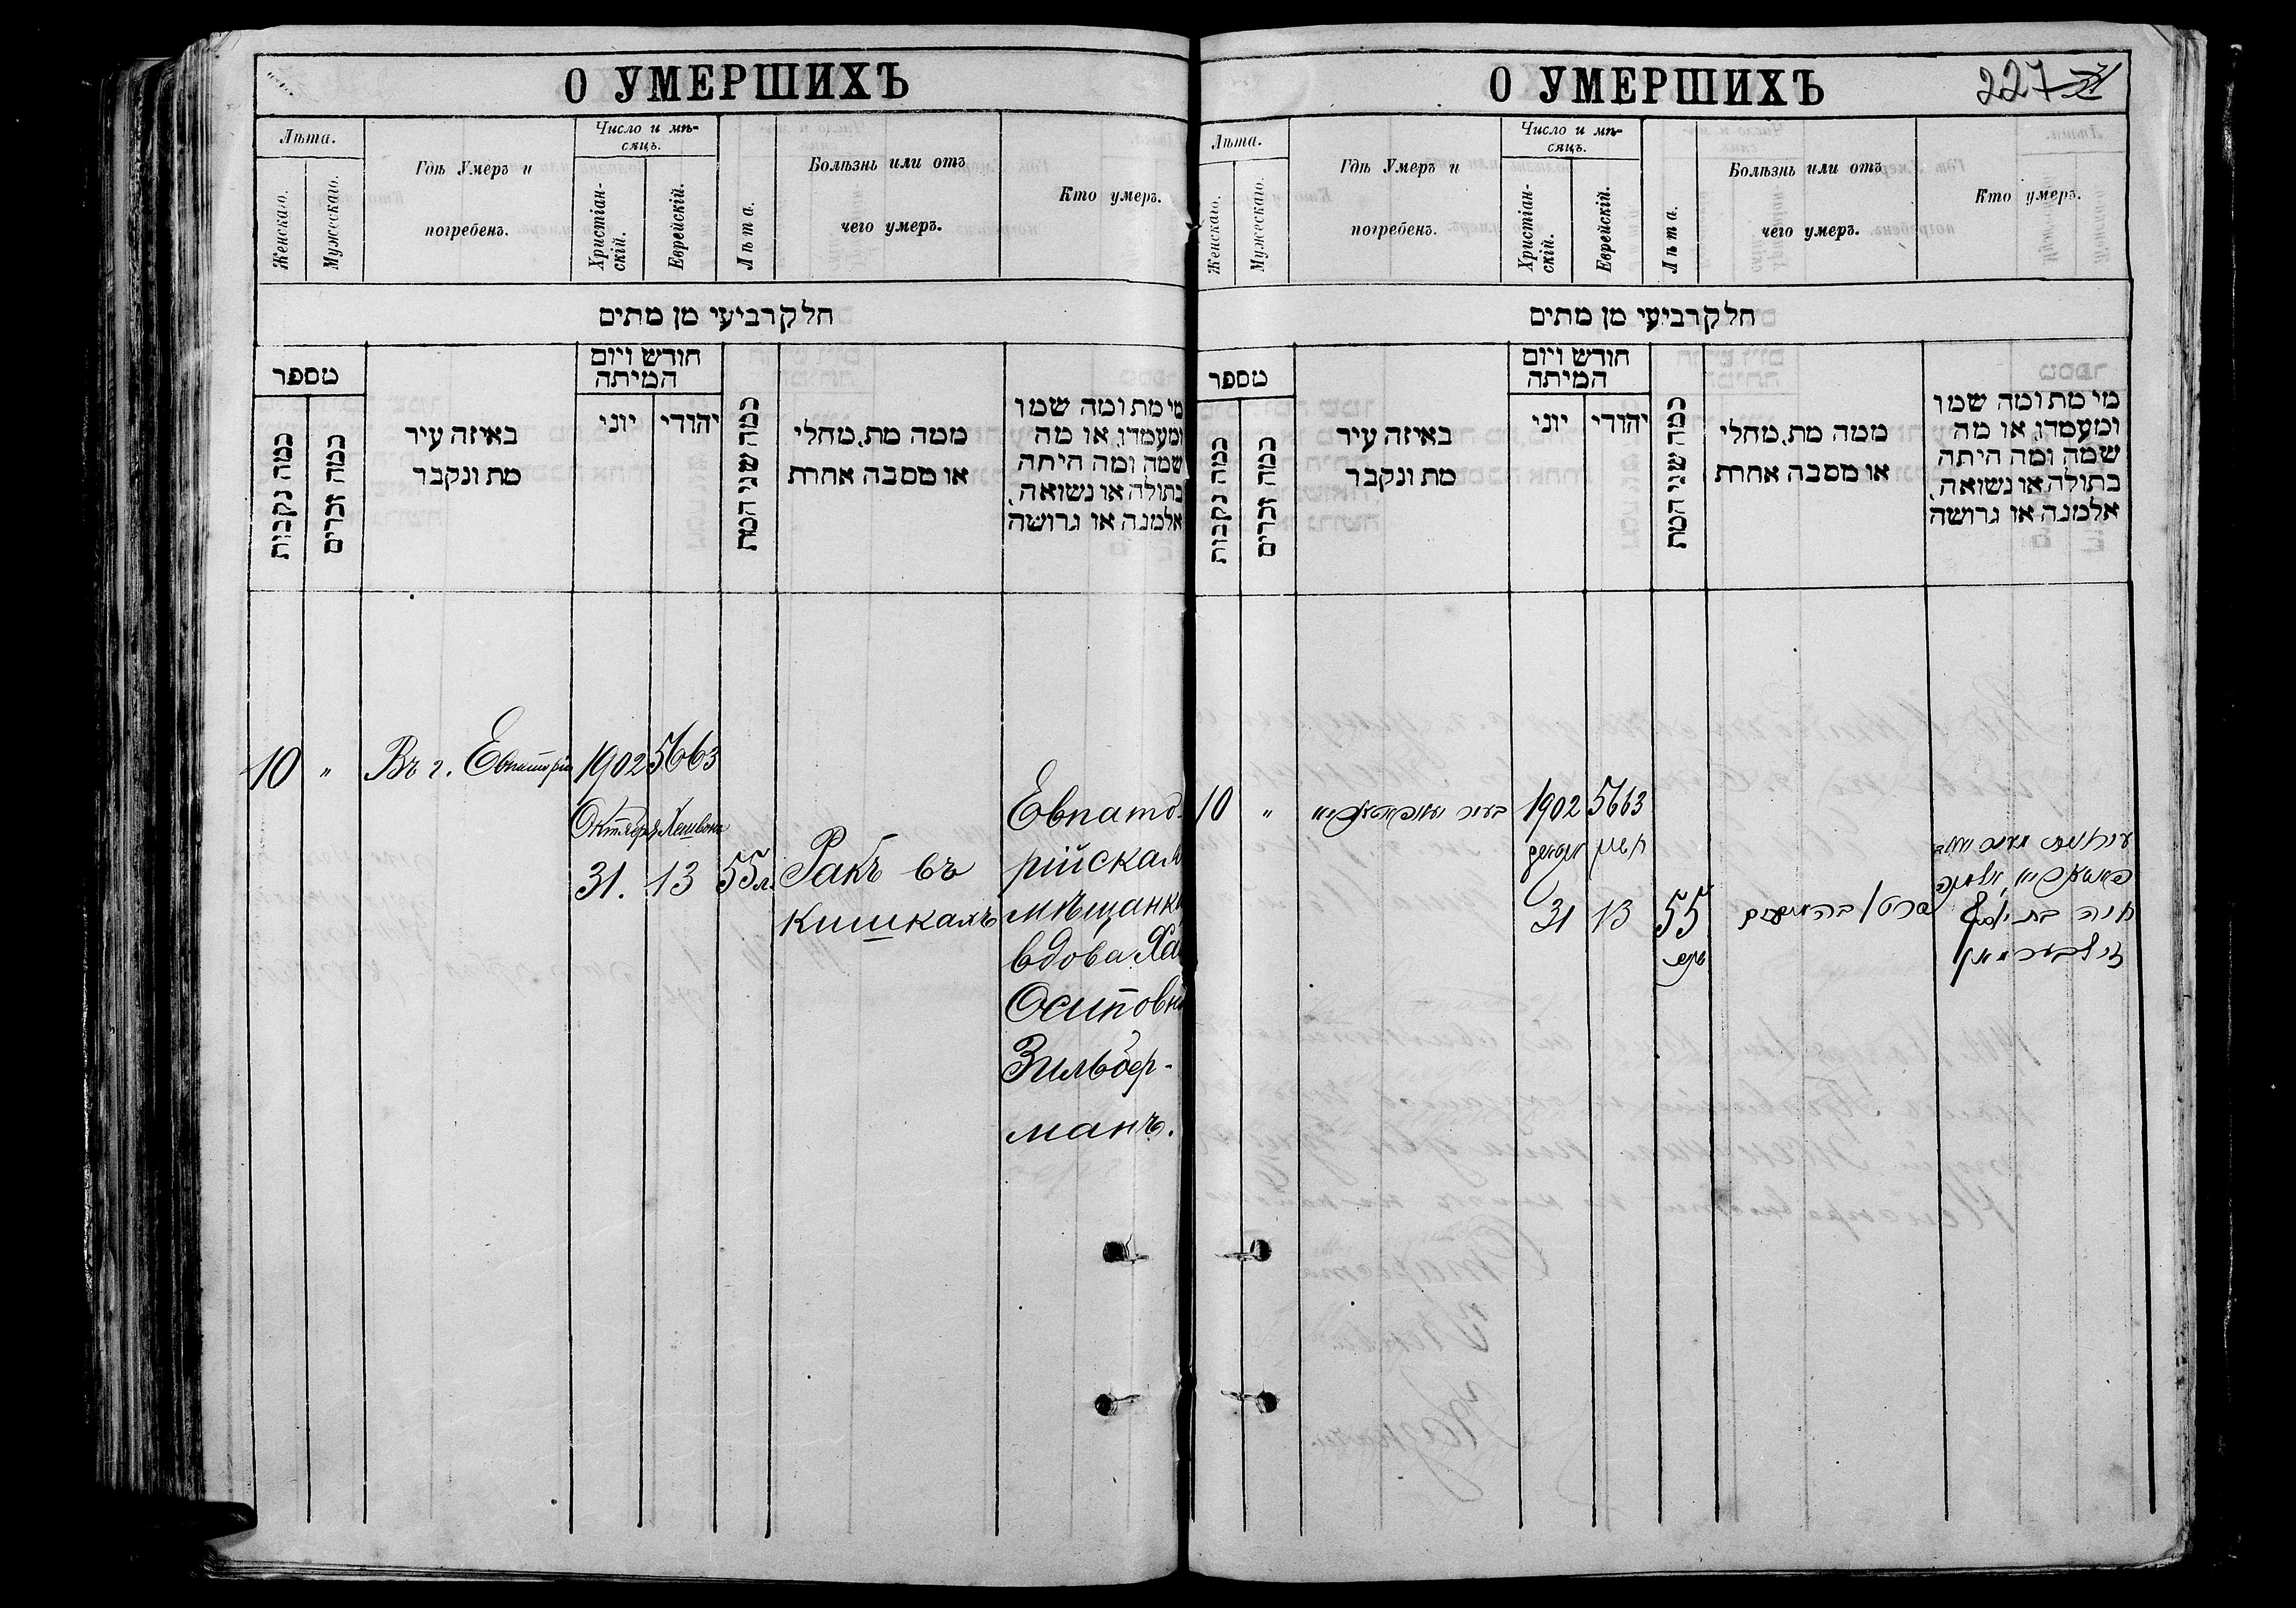 О УМЕРШИХЪ
Лѣта.
Женскаго.
Мужескаго.
Гдѣ Умеръ и
погребенъ.
Число и мѣ-
сяцъ.
Христіан-
скій.
Еврейскій.
Лѣта.
Болѣзнь или отъ
чего умеръ.
Кто умеръ.
חלק רביעי מן מתים
מספר
כמה נקבות
כמה זכרים
באיזה עיר
מת ונקבר
חודש ויום
המיתה
יוני
יהודי
כמה שני המת
ממה מת, מחלי
או מסבה אחרת
מי מת ומה שמו
ומעמדו, או מה
שמה ומה היתה
בתולה או נשואה,
אלמנה או גרושה
10 " Въ г. Евпаторіи 1902 5663
Октября Хешвона
31. 13 55 л. Ракъ въ
кишкахъ
Евпато-
рійская
мѣщанка
вдова Хая
Осиповна
Зильбер-
манъ.
О УМЕРШИХЪ
227
Лѣта.
Женскаго.
Мужескаго.
Гдѣ Умеръ и
погребенъ.
Число и мѣ-
сяцъ.
Христіан-
скій.
Еврейскій.
Лѣта.
Болѣзнь или отъ
чего умеръ.
Кто умеръ.
חלק רביעי מן מתים
מספר
כמה נקבות
כמה זכרים
באיזה עיר
מת ונקבר
חודש ויום
המיתה
יוני
יהודי
כמה שני המת
ממה מת, מחלי
או מסבה אחרת
מי מת ומה שמו
ומעמדו, או מה
שמה ומה היתה
בתולה או נשואה,
אלמנה או גרושה
10 " בעיר 1902 5663
חשון
31 13 55
חיה בת יוסף
זילבערמאן